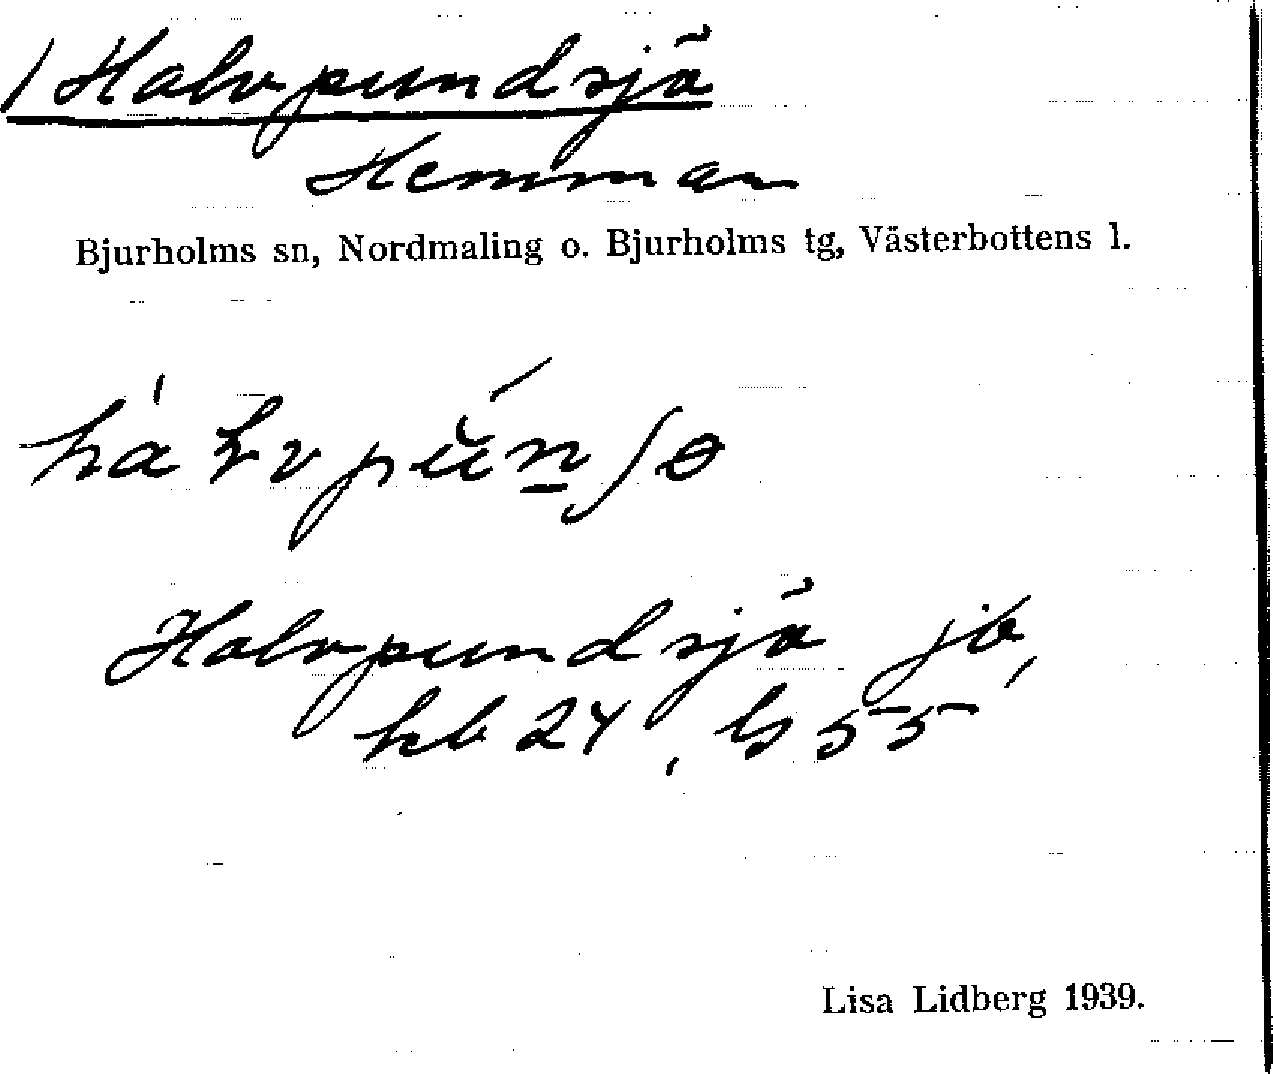 / Halvpundsjö
Hemman
Bjurholms sn, Nordmaling o. Bjurholms tg, Västerbottens l.
Halvpundsjö jb,
kb 24, GS 55
Lisa Lidberg 1939.